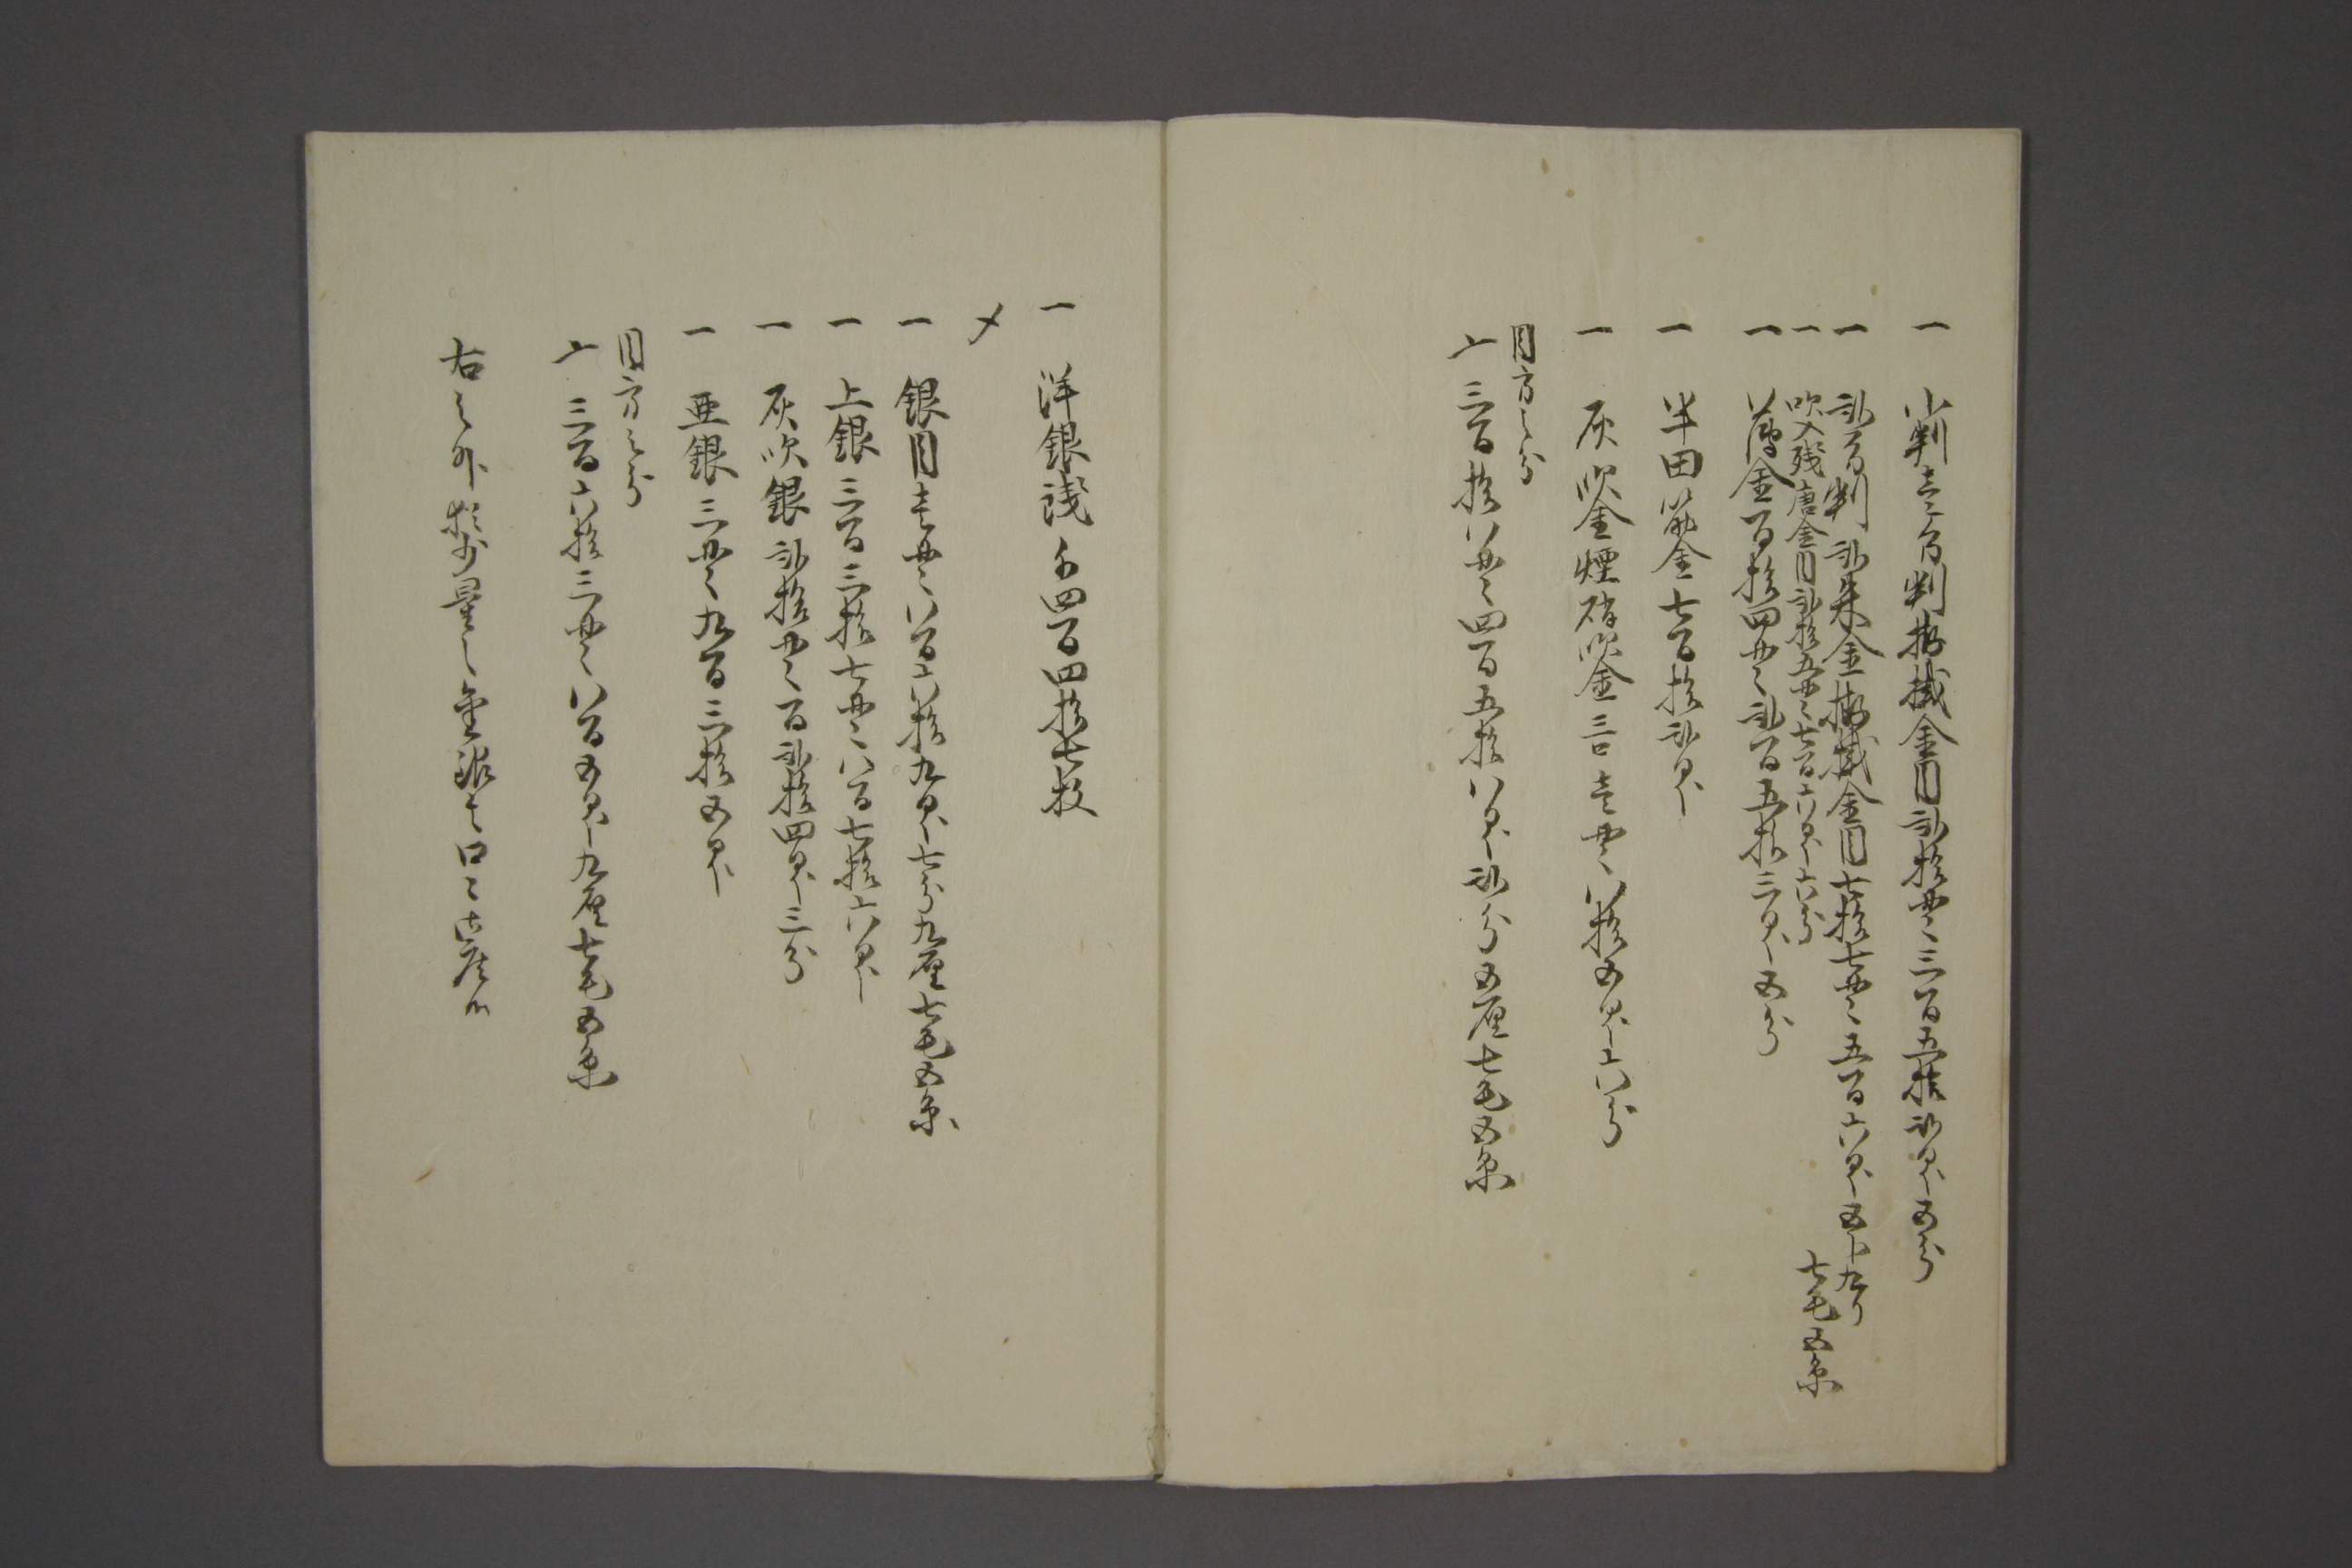 一 小判壱分判拵掛金目弐拾貫三百五拾弐匁五分
一 弐分判弐朱金拵掛金目七拾七貫五百六匁五分九り
七毛五糸
一 吹入残唐金目弐拾五貫七百六匁六分
一 薄金百拾四貫弐百五拾三匁五分
一 半田筋金七百拾弐匁
一 灰吹金煙硝吹金三口壱貫八拾五匁六分
目方之分
〆 三百拾八貫四百五拾八匁弐分五厘七毛五糸
一 洋銀銭千四百四拾七枚
〆
一 銀目壱貫八百六拾九匁七分九厘七毛五糸
一 上銀三百三拾七貫八百七拾六匁
一 灰吹銀弐拾貫百弐拾四匁三分
一 亜銀三貫九百三拾五匁
目方之分
〆 三百六拾三貫八百五匁九厘七毛五糸
右之外極少量之金銀も口々御座候